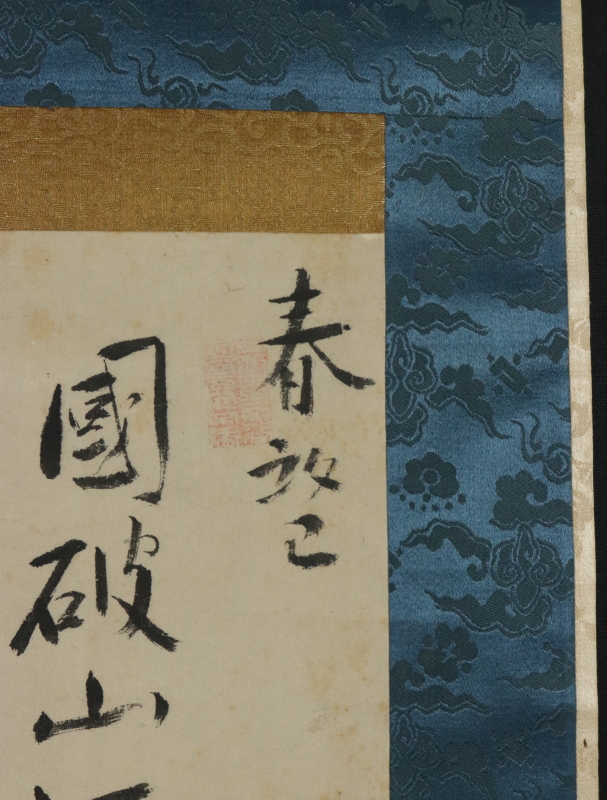 春望
國破山